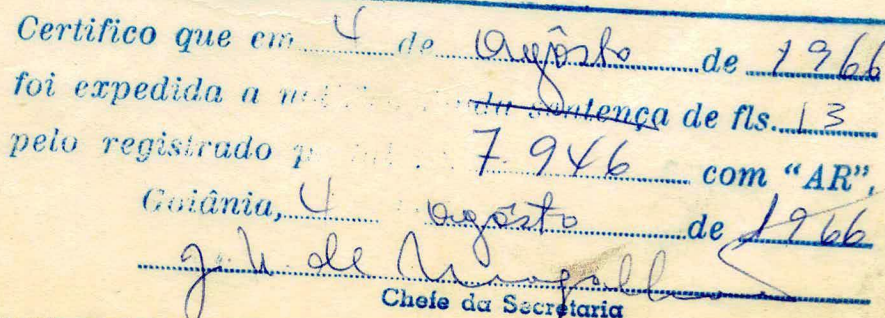 Certifico que em 4 de Agôsto de 1966
foi expedida a da sentença de fls. 13
pelo registrado 7.946 com "AR",
Goiânia, 4 agôsto de 1966
Chefe da Secretaria